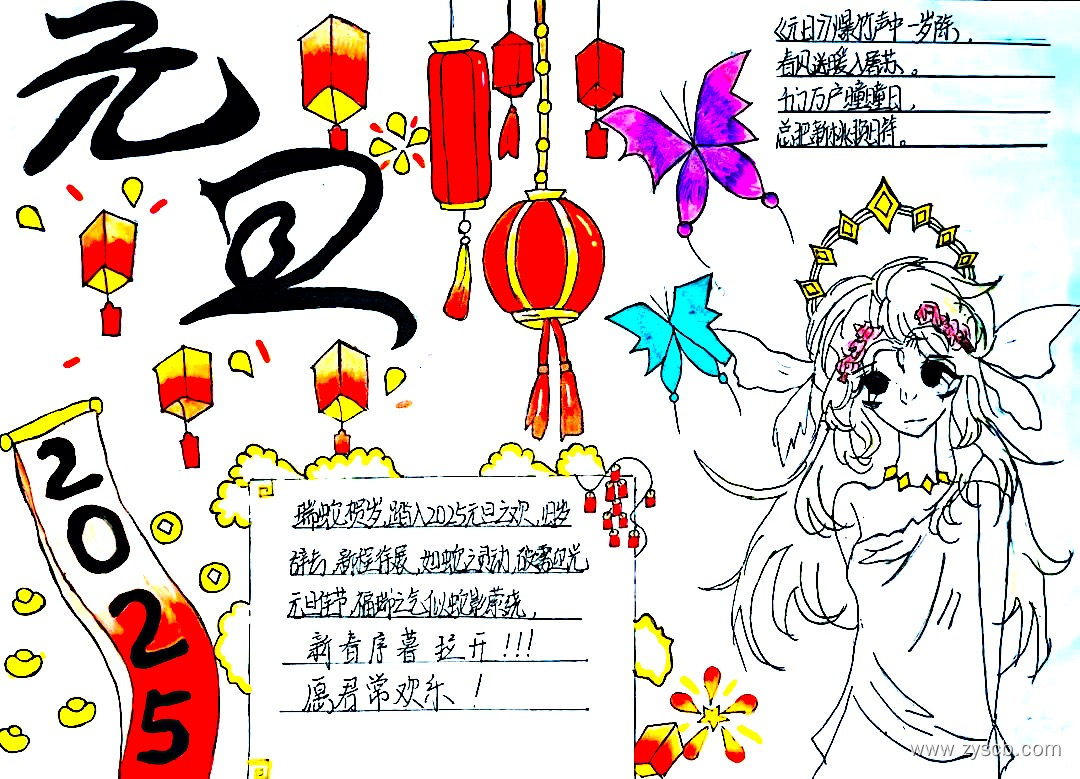 元旦
《元日》爆竹声中一岁除,
春风送暖入屠苏。
千门万户瞳瞳日,
总把新桃换旧符。
2025
瑞蛇贺岁,踏入2025元旦之欢,旧岁
辞去,新程待展,如蛇之灵动,破雾见光
元旦佳节,福瑞之气似蛇影萦绕,
新春序暮拉开!!!
愿君常欢乐!
www.zyscb.com